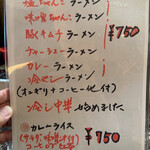 塩ちゃんこラーメン
味噌ちゃんこラーメン
豚キムチラーメン ¥750
チャーシューラーメン
カレーラーメン
冷やしラーメン
(オニギリ・コーヒー化付)
冷し中華 始めました
カレーライス
(サラダ・味噌汁付) ¥750
コーヒー